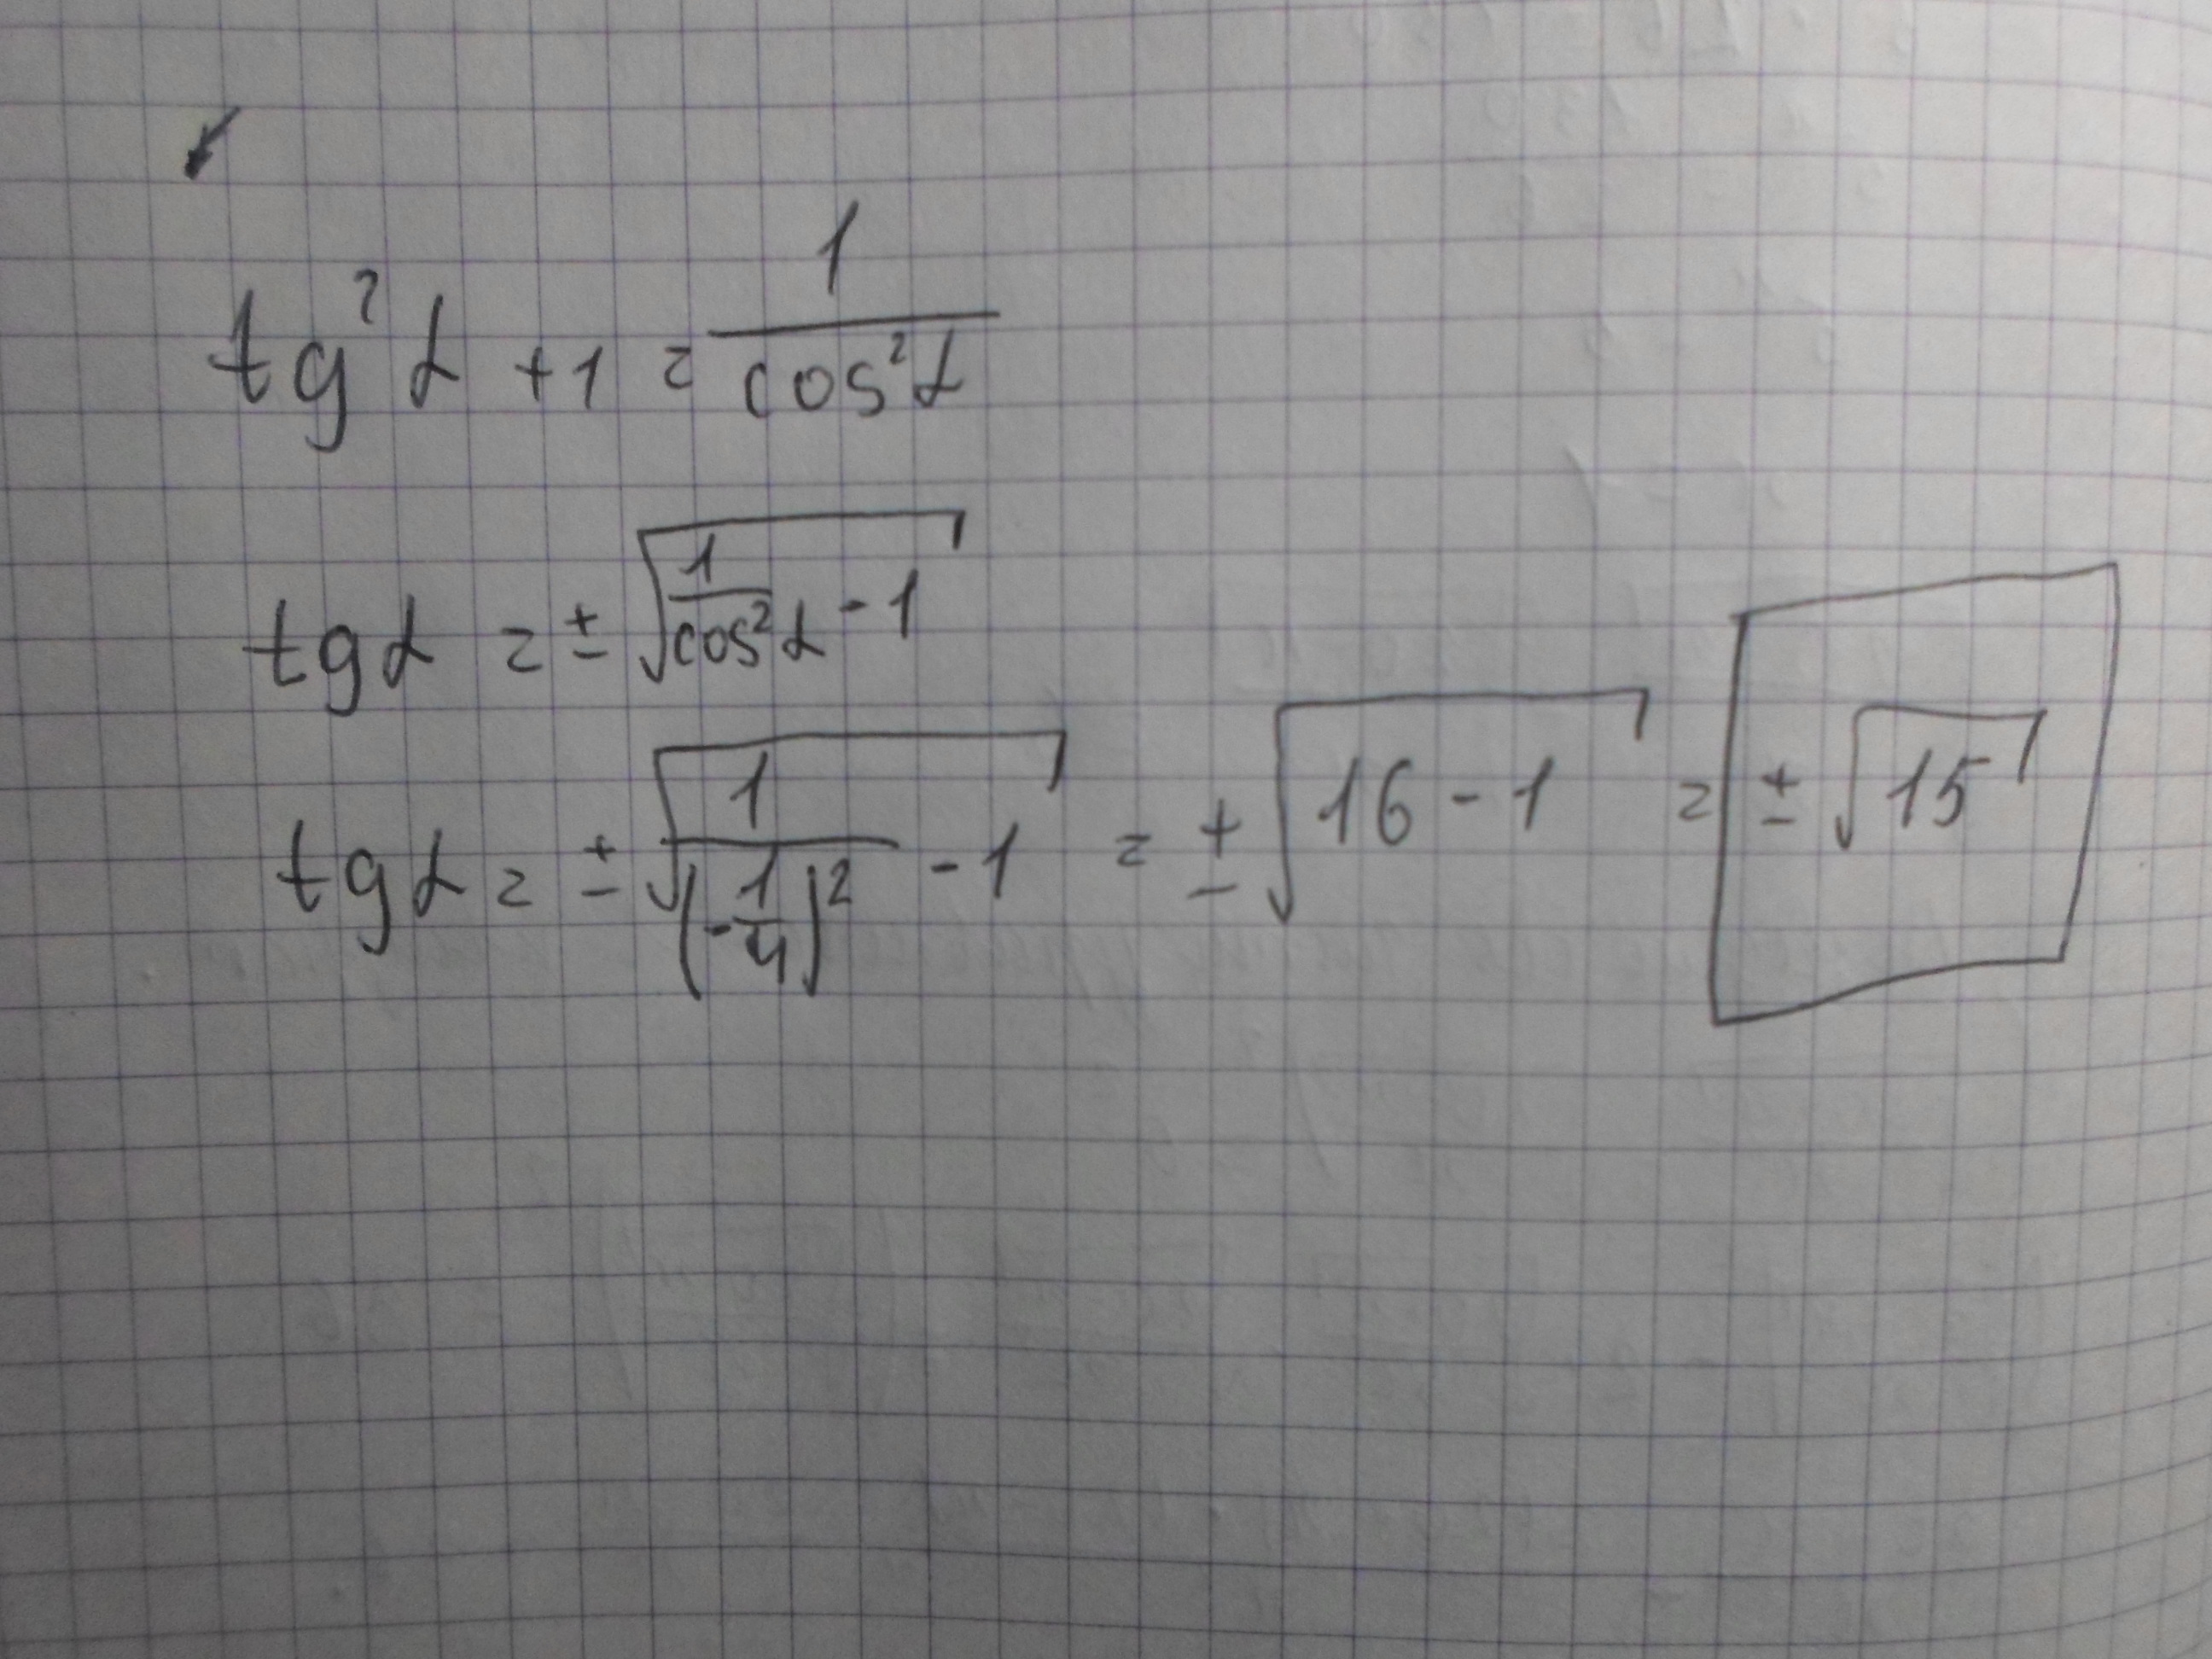 tg²α + 1 = 1/cos²α
tgα = ± √(1/cos²α - 1)
tgα = ± √(1/(-1/4)² - 1) = ± √(16 - 1) = ± √15